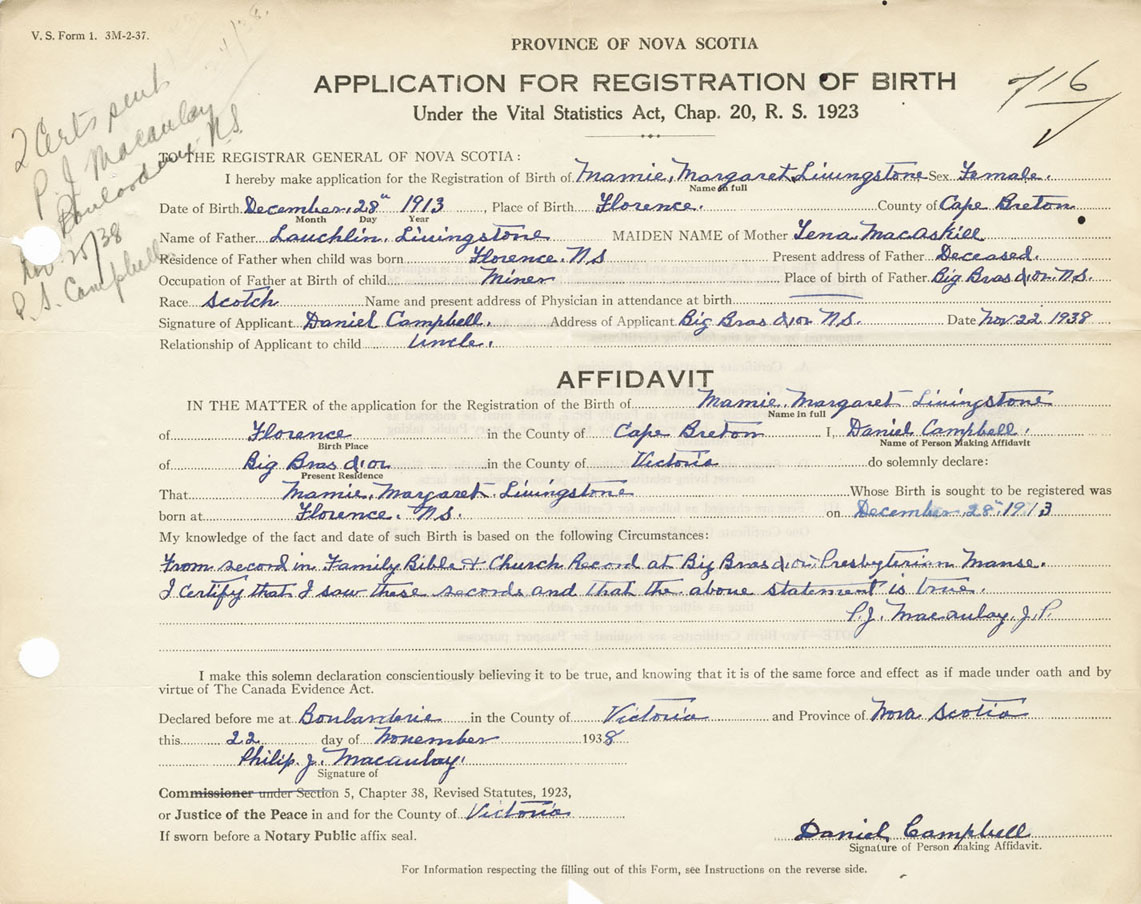 V. S. Form 1. 3M-2-37.
PROVINCE OF NOVA SCOTIA
APPLICATION FOR REGISTRATION OF BIRTH
Under the Vital Statistics Act, Chap. 20, R. S. 1923
716
2 Certs sent
P. J. Macaulay
Boulardarie N.S.
Nov. 25/38
P. S. Campbell
TO THE REGISTRAR GENERAL OF NOVA SCOTIA:
I hereby make application for the Registration of Birth of Mamie Margaret Livingstone Sex Female.
Name in full
Date of Birth December 28th 1913, Place of Birth Florence. County of Cape Breton
Month Day Year
Name of Father Lauchlin Livingstone MAIDEN NAME of Mother Lena MacAskill
Residence of Father when child was born Florence. N.S Present address of Father Deceased.
Occupation of Father at Birth of child Miner Place of birth of Father Big Bras d'or N.S.
Race Scotch Name and present address of Physician in attendance at birth
Signature of Applicant Daniel Campbell. Address of Applicant Big Bras d'or N.S. Date Nov 22 1938
Relationship of Applicant to child Uncle.
AFFIDAVIT
IN THE MATTER of the application for the Registration of the Birth of Mamie Margaret Livingstone
Name in full
of Florence in the County of Cape Breton I, Daniel Campbell.
Birth Place Name of Person Making Affidavit
of Big Bras d'or in the County of Victoria do solemnly declare:
Present Residence
That Mamie Margaret Livingstone Whose Birth is sought to be registered was
born at Florence. N.S. on December 28th 1913
My knowledge of the fact and date of such Birth is based on the following Circumstances:
From record in Family Bible & Church Record at Big Bras d'or Presbyterian Manse.
I certify that I saw these records and that the above statement is true.
P.J. Macaulay, J.P.
I make this solemn declaration conscientiously believing it to be true, and knowing that it is of the same force and effect as if made under oath and by
virtue of The Canada Evidence Act.
Declared before me at Boularderie in the County of Victoria and Province of Nova Scotia
this 22 day of November 1938
Philip J. Macaulay.
Signature of
Commissioner under Section 5, Chapter 38, Revised Statutes, 1923,
or Justice of the Peace in and for the County of Victoria
If sworn before a Notary Public affix seal.
Daniel Campbell
Signature of Person making Affidavit.
For Information respecting the filling out of this Form, see Instructions on the reverse side.